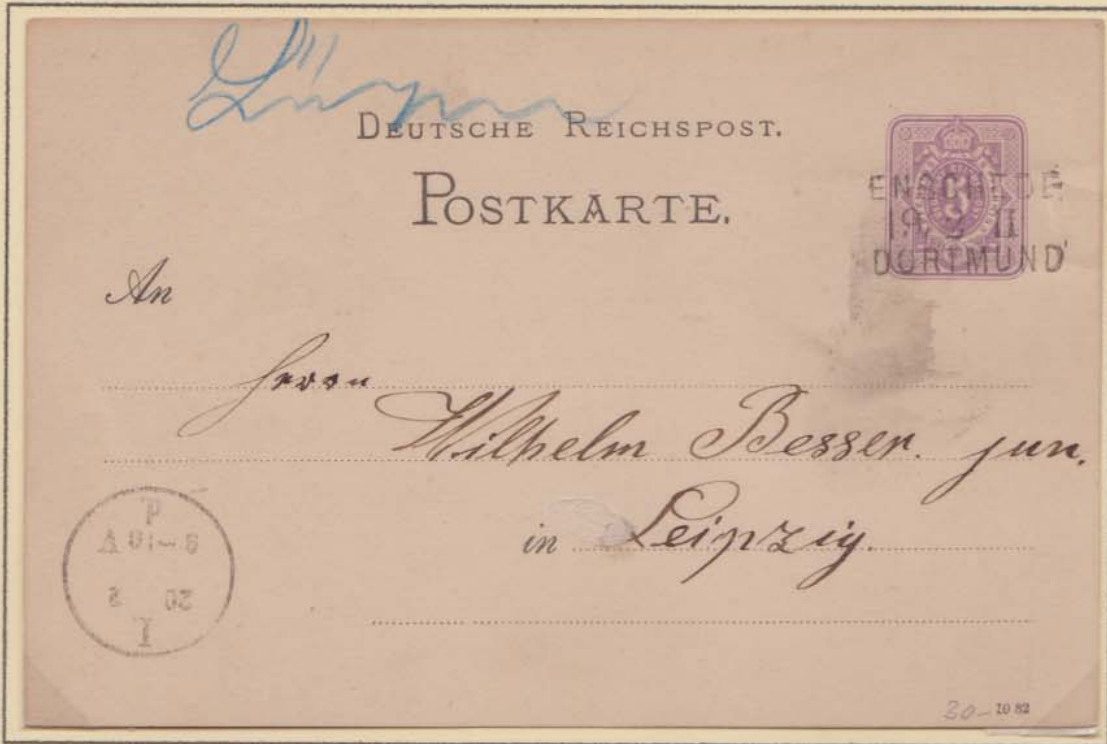 Lünen
DEUTSCHE REICHSPOST.
POSTKARTE.
ENSCHEDE
19. 2 II
DORTMUND
5
An
Herrn
Wilhelm Besser. jun.
in Leipzig.
d
8-10 V
20 2
I
30- 10 82